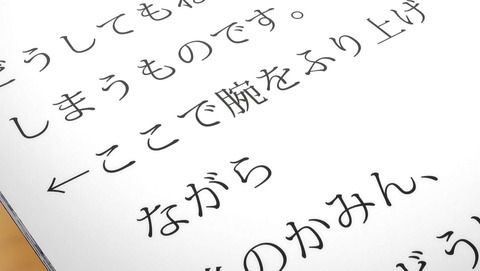 どうしてもね
しまうものです。
←ここで腕をふり上げ
ながら
のかみん、
どう